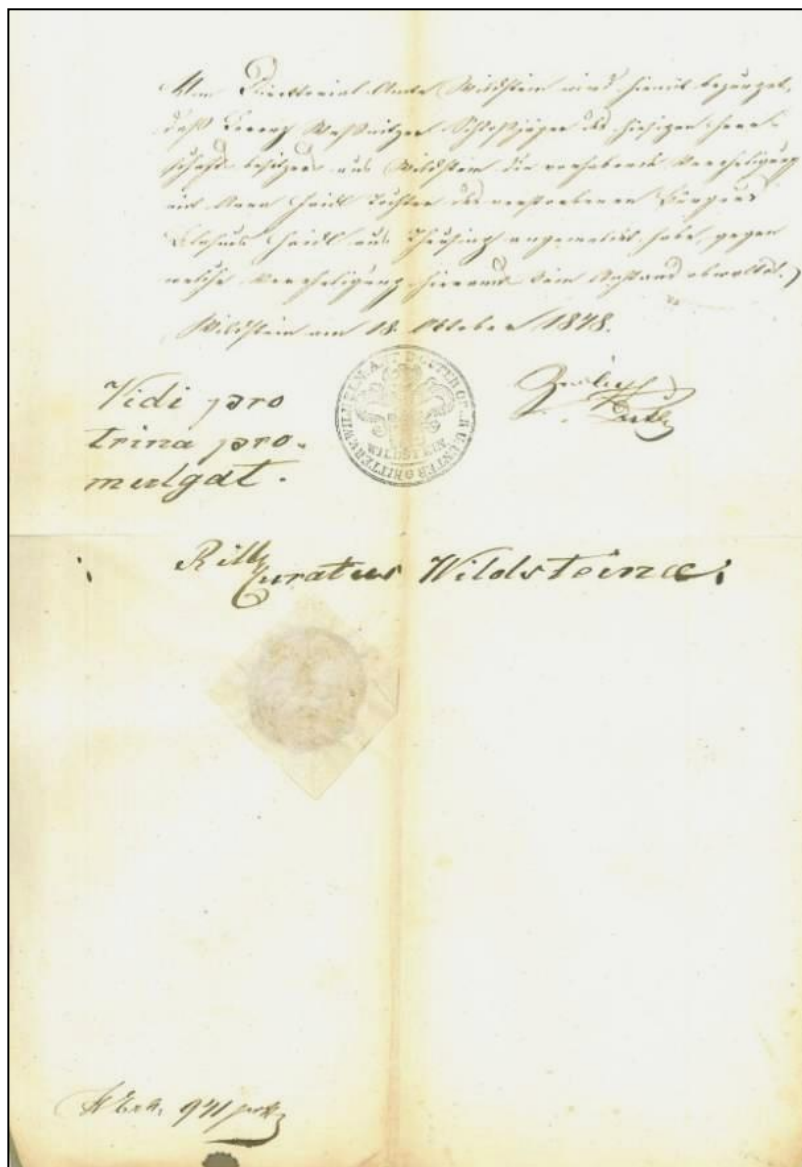 Vom Direktorial-Amte Wildstein wird hiemit bezeuget,
daß Lorenz Schloßjäger des hiesigen Herr-
schaft besitzers aus Wildstein die vorhabende Verehelichung
mit Anna Haidl Tochter des verstorbenen Bürgers
Haidl aus Theusing angemeldet habe, gegen
welche Verehelichung hieramts kein Anstand obwaltet.
Wildstein am 18. Oktober 1848.
Vidi pro
trina pro-
mulgat.
WILDSTEIN
Curatus Wildsteinæ
941